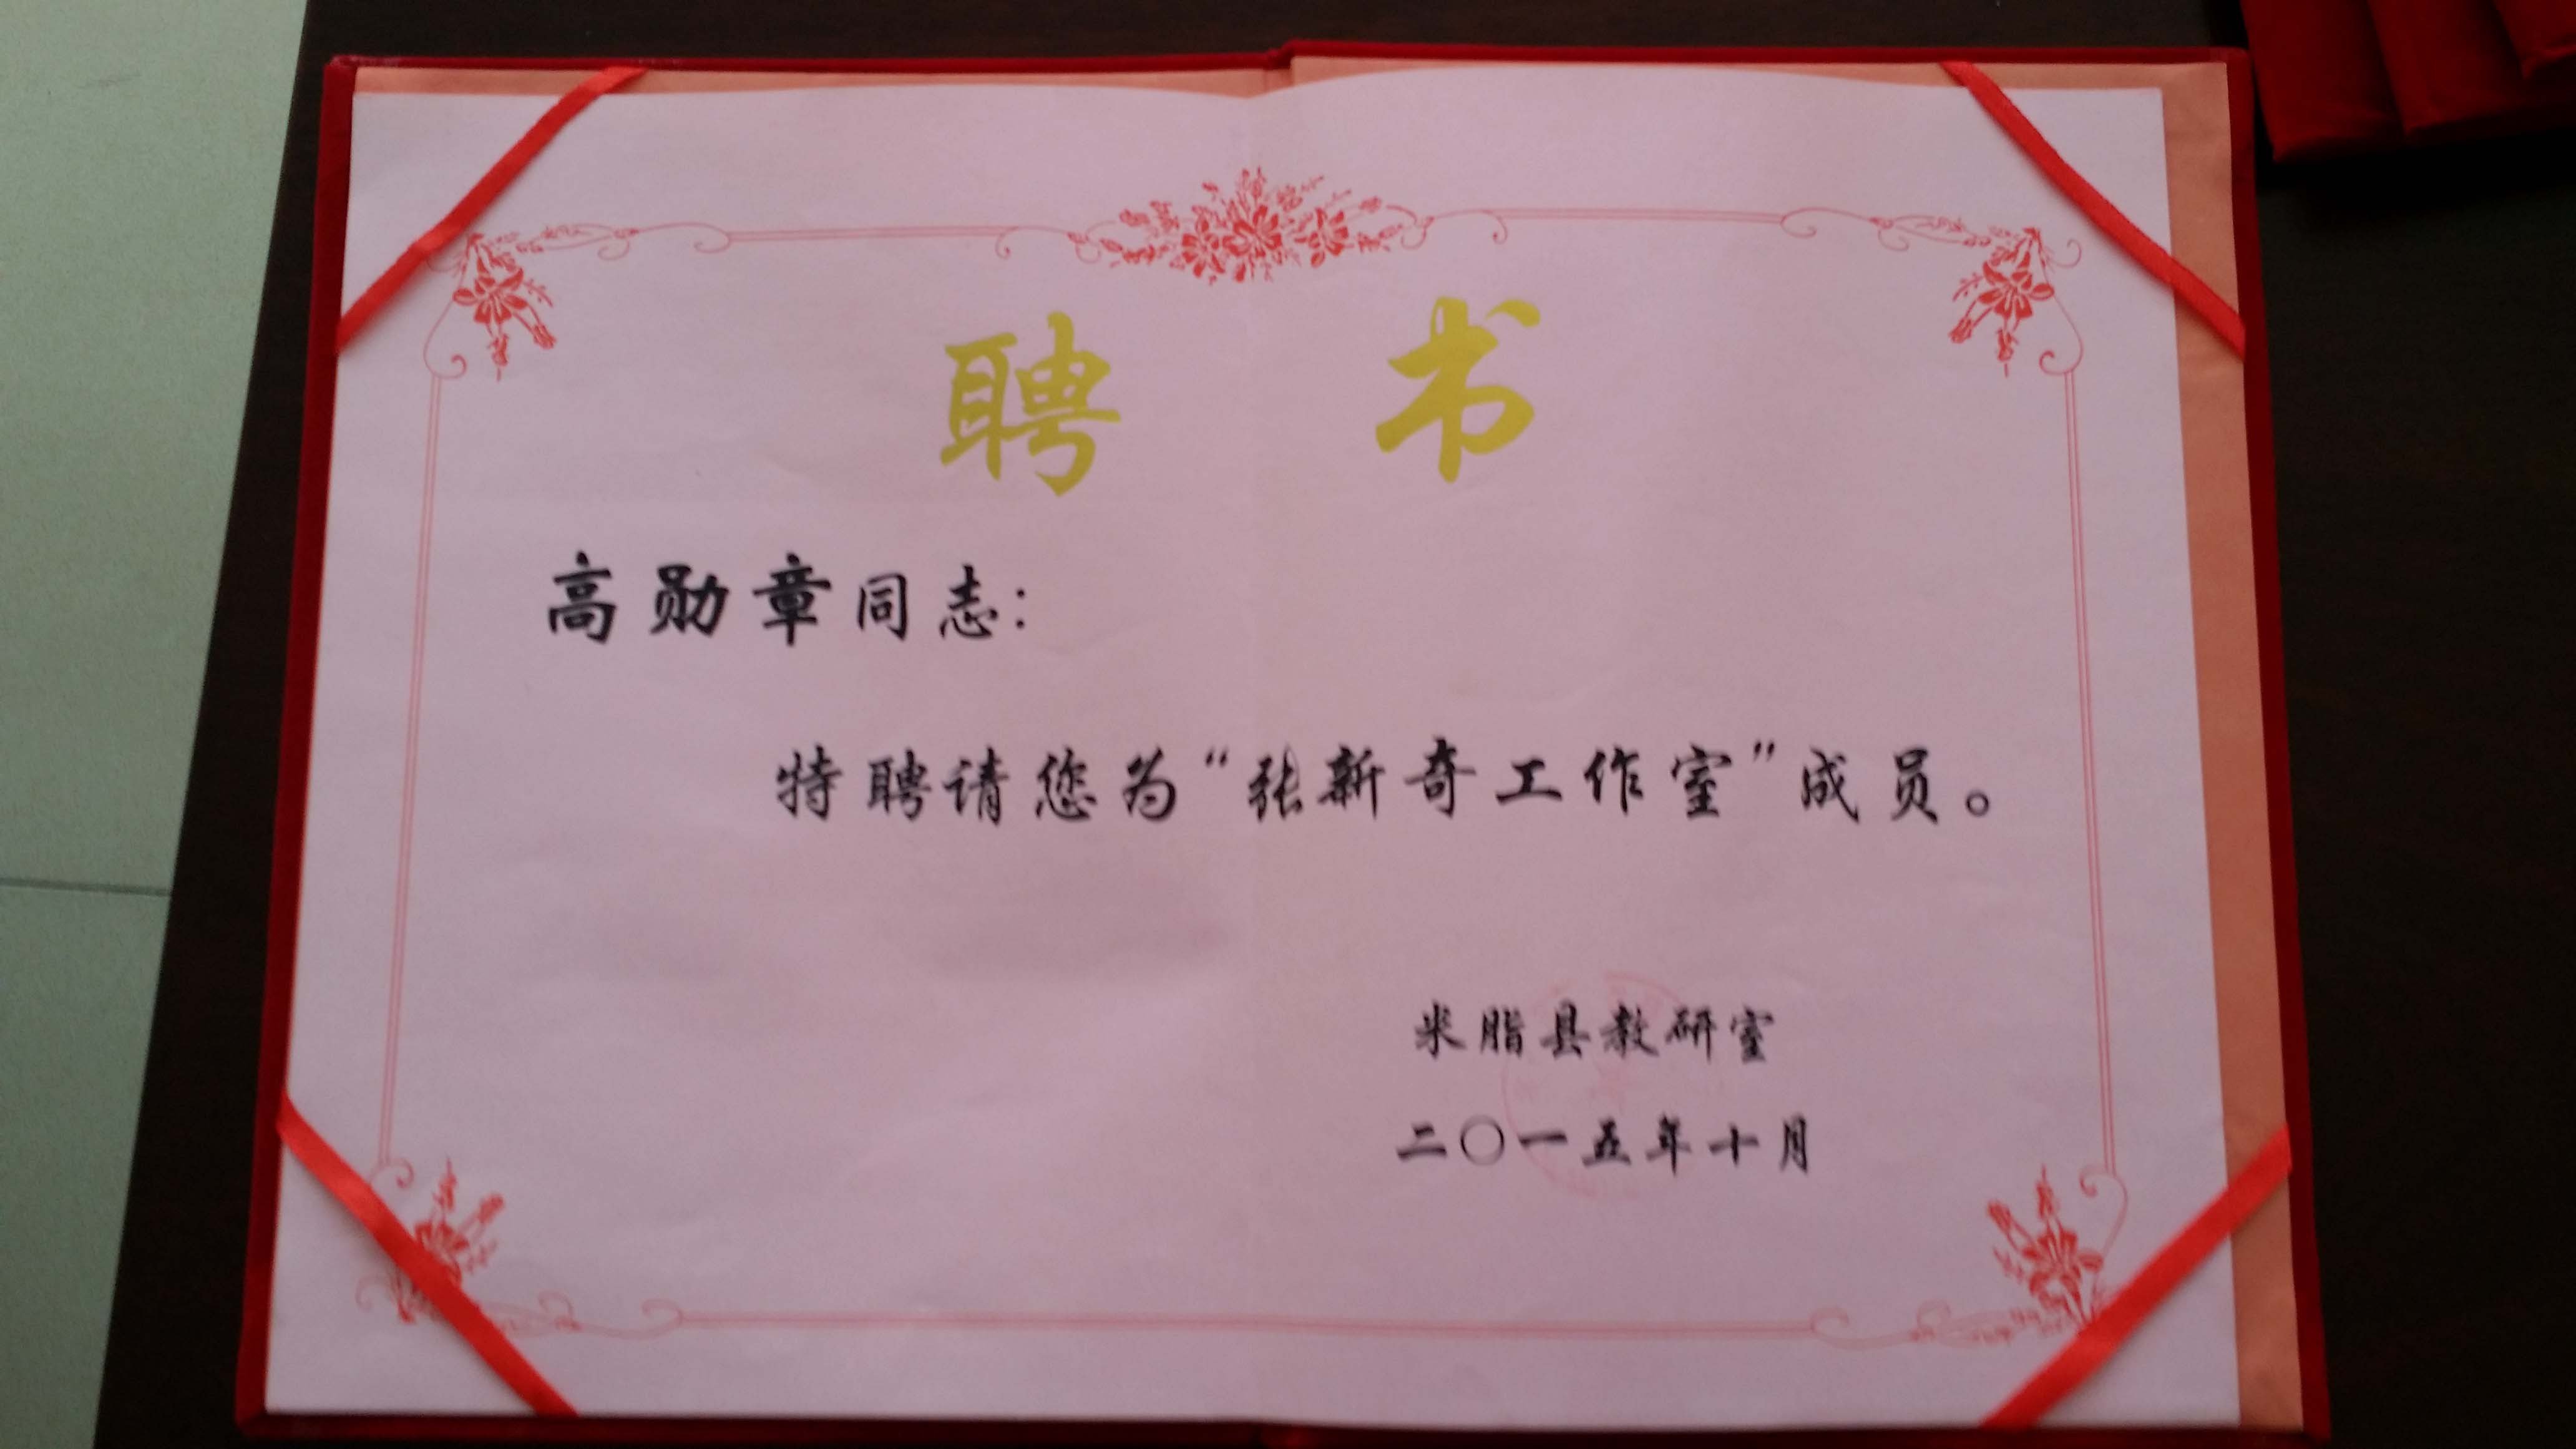 聘书
高勋章同志：
特聘请您为“张新奇工作室”成员。
米脂县教研室
二〇一五年十月